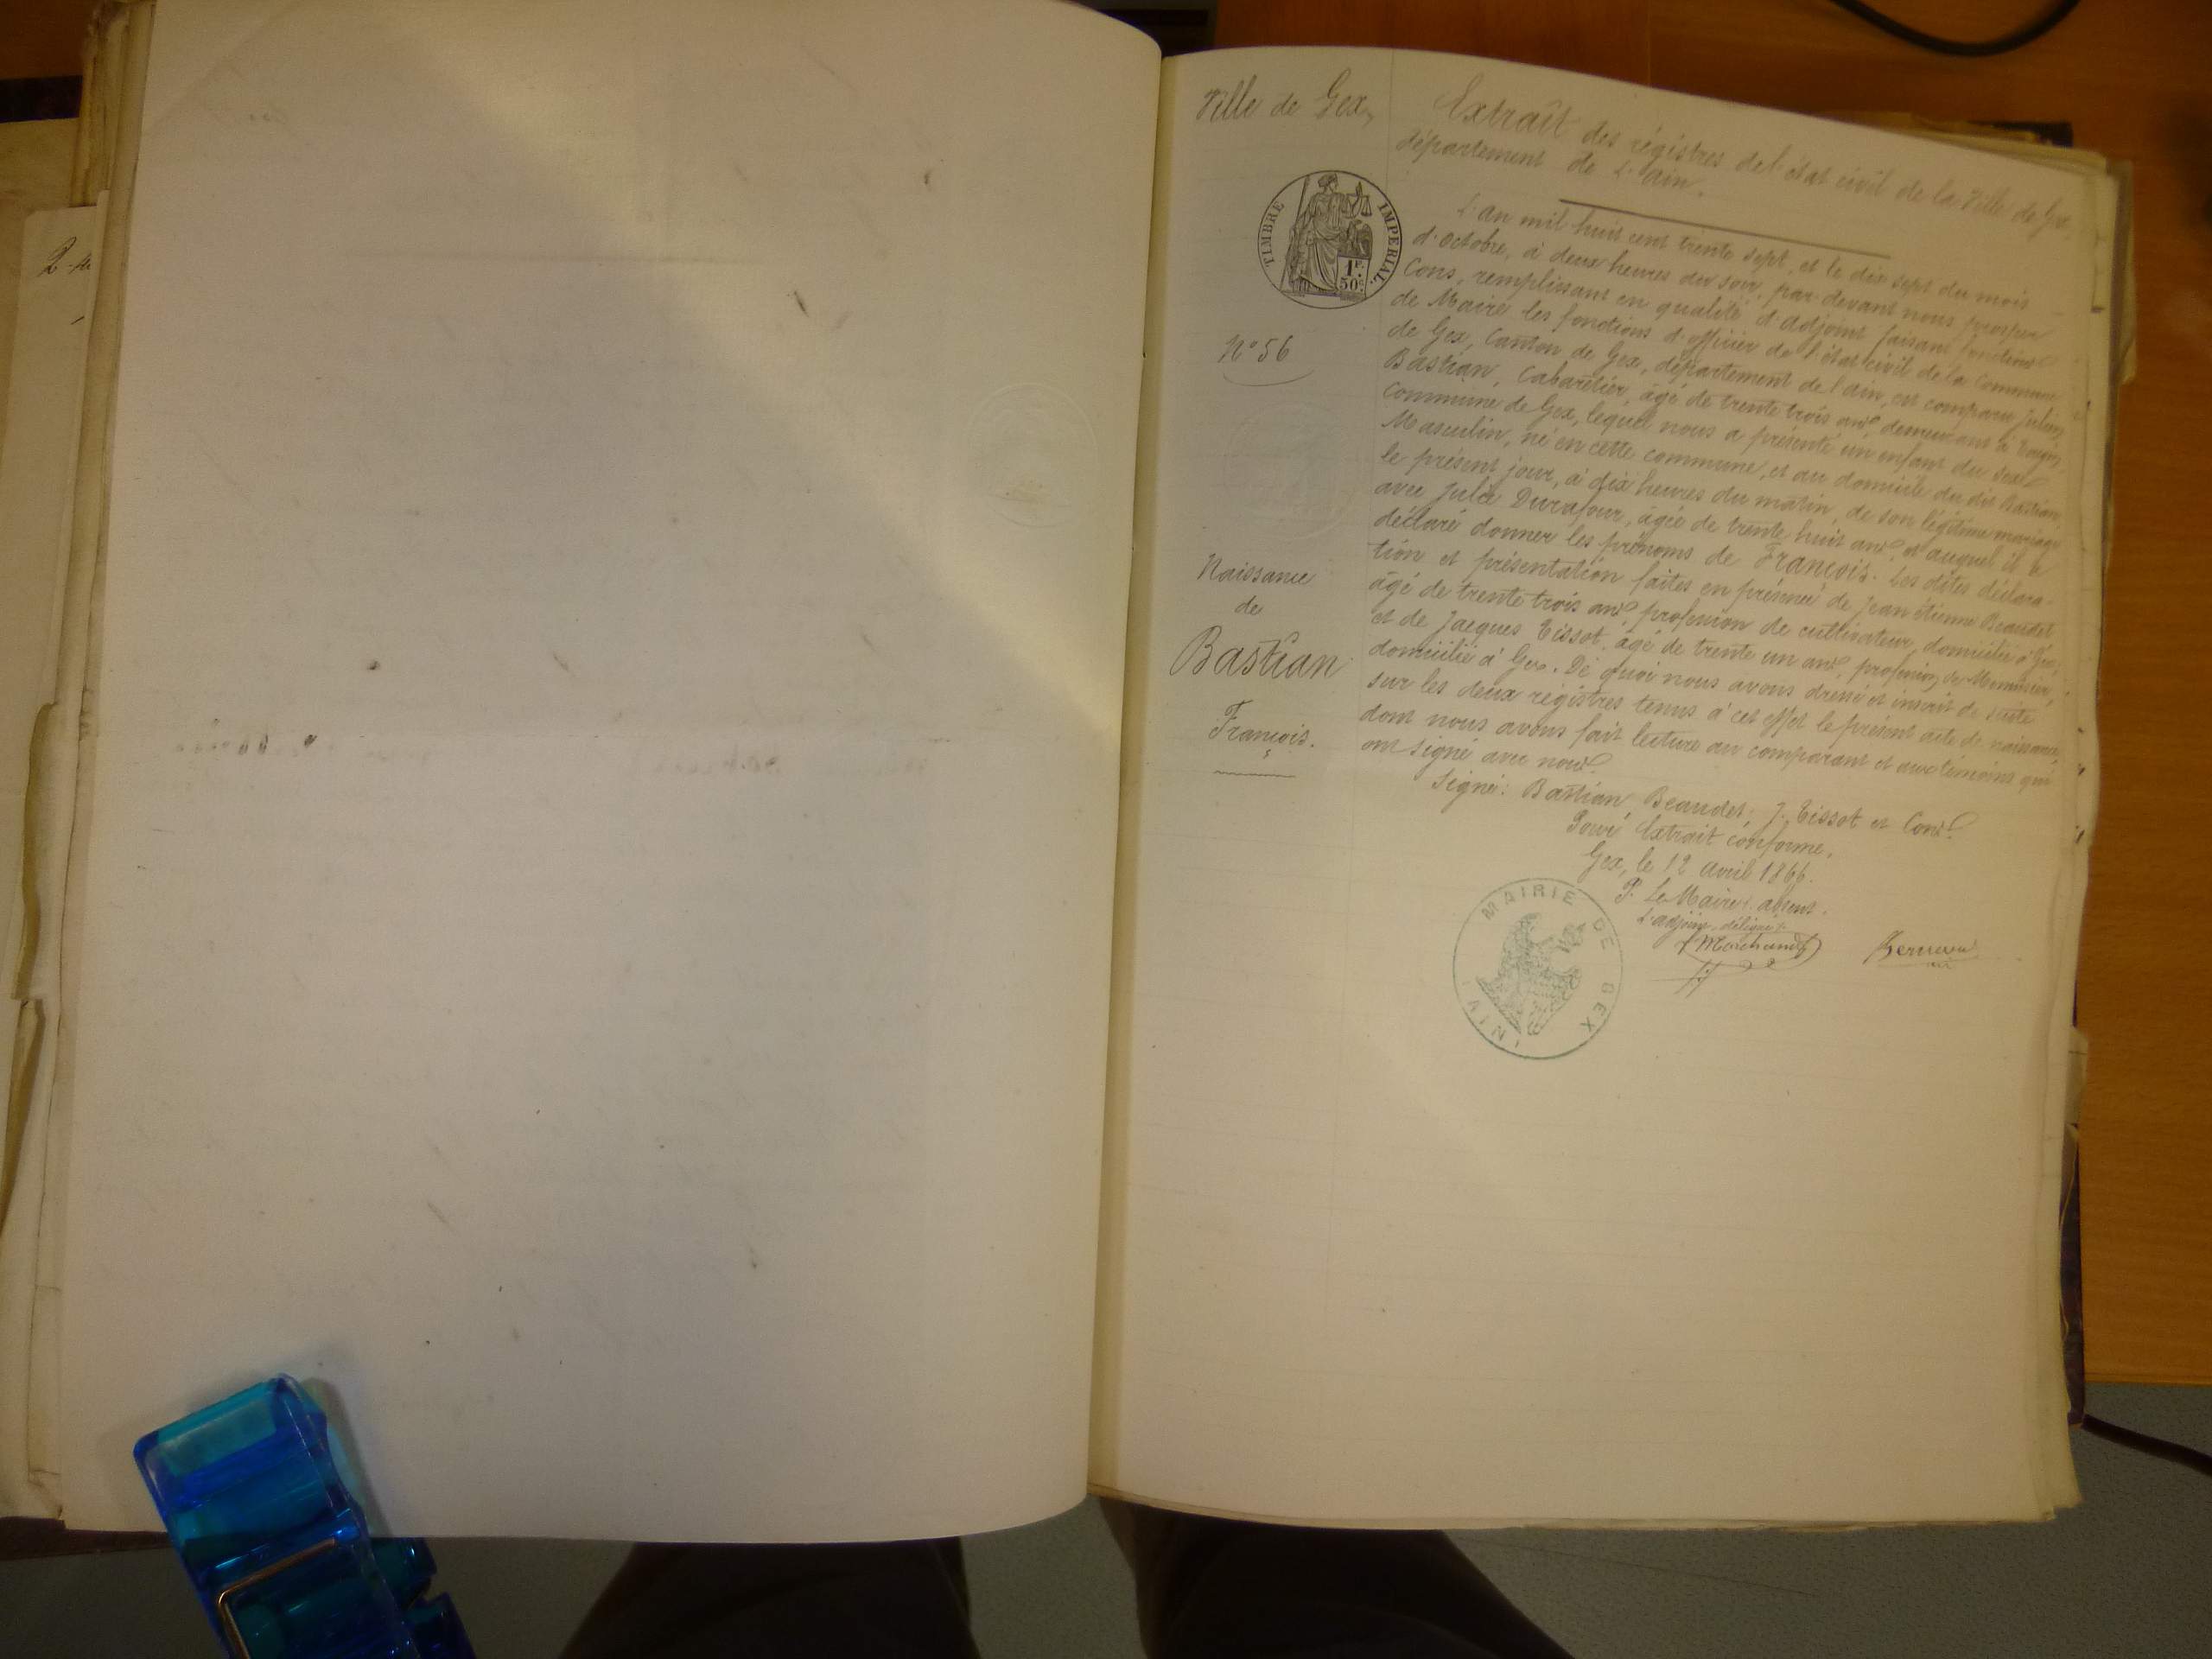 2
Ville de Gex,
TIMBRE IMPERIAL
1F.
50c.
N° 56
Naissance
de
Bastian
François.
Extrait des régistres de l'état civil de la Ville de Gex,
département de L'ain.
L'an mil huit cent trente sept, et le dix sept du mois
d'octobre, à deux heures du soir, par devant nous prosper
Cons, remplissant en qualité d'adjoint faisant fonctions
de Maire les fonctions d'officier de l'état civil de la Commune
de Gex, Canton de Gex, département de l'ain, est comparu
Bastian, Cabaretier, âgé de trente trois ans, demeurant à
Commune de Gex, lequel nous a présenté un enfant du sexe
Masculin, né en cette commune, et au domicile du dit Bastian,
le présent jour, à dix heures du matin, de son légitime mariage
avec Julie Durafour, âgée de trente huit ans, et auquel il a
déclaré donner les prénoms de François. Les dites déclara-
tion et présentation faites en présence de Jean étienne Beaudet
âgé de trente trois ans, profession de cultivateur, domicilié à Gex,
et de Jacques Tissot, âgé de trente un ans, profession de Menuisier,
domicilié à Gex. De quoi nous avons dressé et inscrit de suite
sur les deux régistres tenus à cet effet le présent acte de naissance,
dont nous avons fait lecture au comparant et aux témoins qui
ont signé avec nous.
Signé: Bastian, Beaudet, J. Tissot et Cons.
Pour Extrait conforme,
Gex, le 12 avril 1866.
Pr. Le Maire absent.
L'adjoint délégué
Marchand
MAIRIE DE GEX
(AIN)